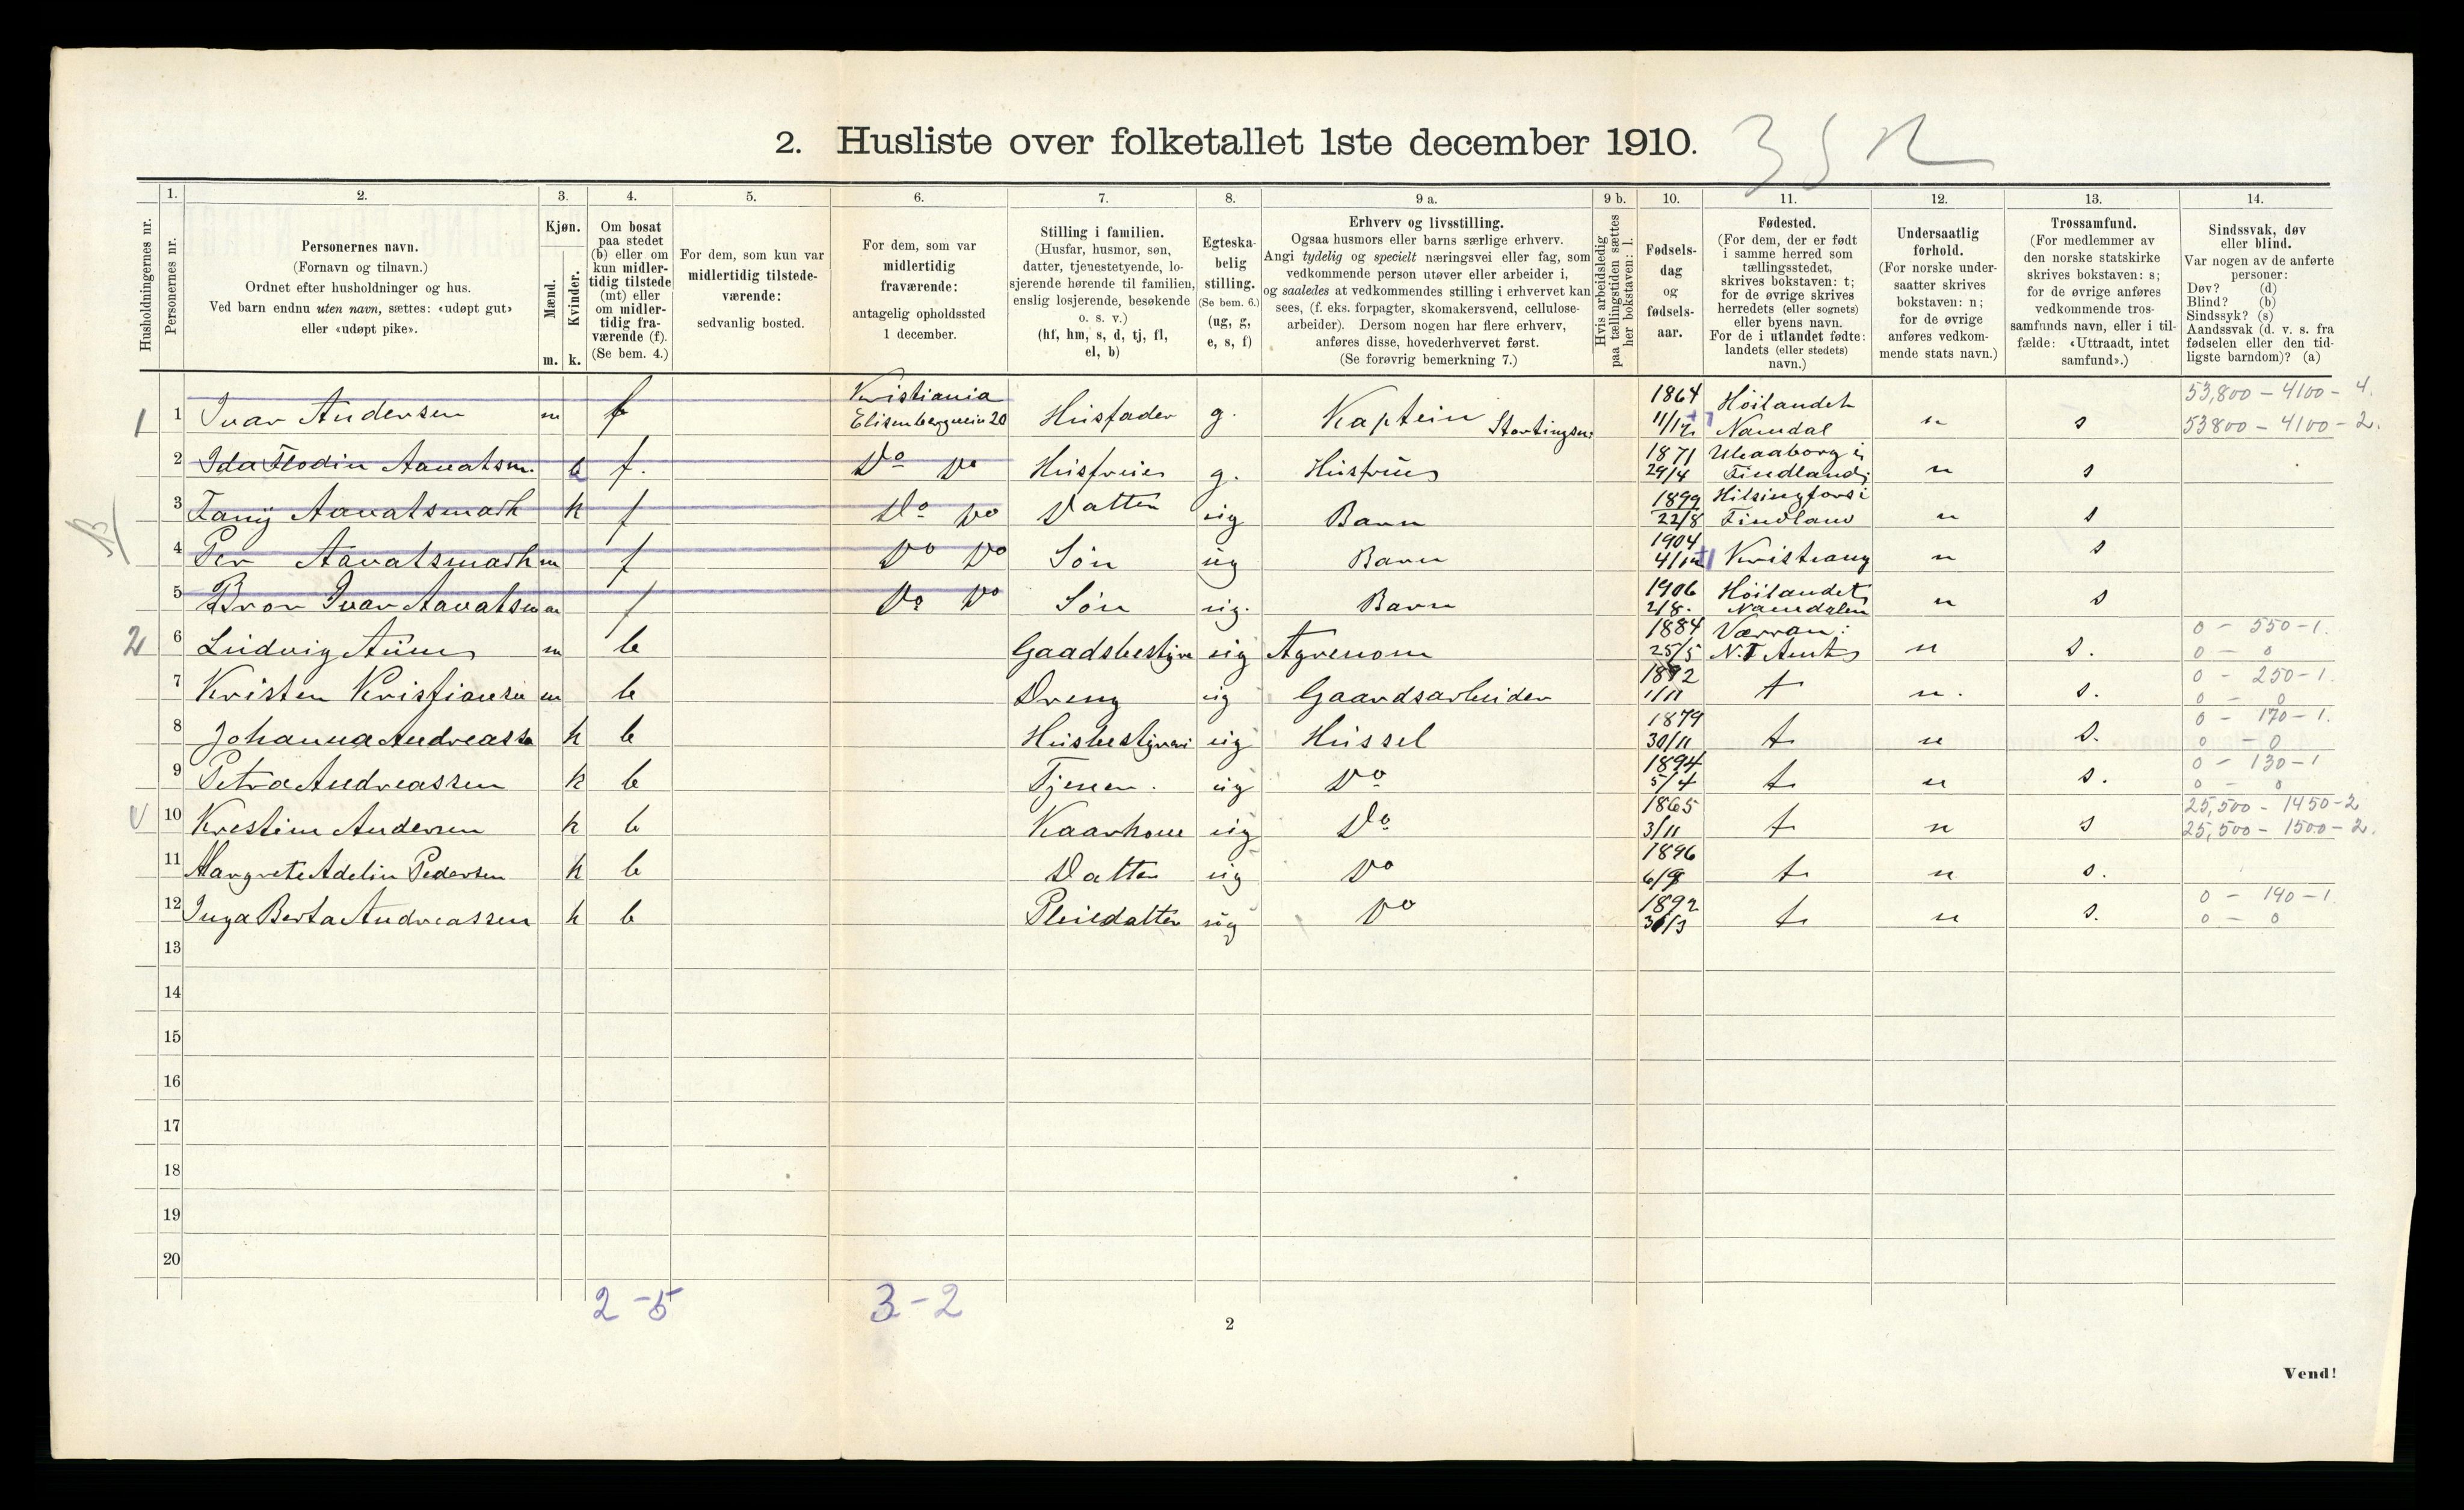 2. Husliste over folketallet 1ste december 1910.
Husholdningernes nr.
1. Personernes nr.
2. Personernes navn.
(Fornavn og tilnavn.)
Ordnet efter husholdninger og hus.
Ved barn endnu uten navn, sættes: «udøpt gut»
eller «udøpt pike».
3. Kjøn.
Mænd. Kvinder.
m. k.
4. Om bosat
paa stedet
(b) eller om
kun midler-
tidig tilstede
(mt) eller
om midler-
tidig fra-
værende (f).
(Se bem. 4.)
5. For dem, som kun var
midlertidig tilstede-
værende:
sedvanlig bosted.
6. For dem, som var
midlertidig
fraværende:
antagelig opholdssted
1 december.
7. Stilling i familien.
(Husfar, husmor, søn,
datter, tjenestetyende, lo-
sjerende hørende til familien,
enslig losjerende, besøkende
o. s. v.)
(hf, hm, s, d, tj, fl,
el, b)
8. Egteska-
belig
stilling.
(Se bem. 6.)
(ug, g,
e, s, f)
9 a. Erhverv og livsstilling.
Ogsaa husmors eller barns særlige erhverv.
Angi tydelig og specielt næringsvei eller fag, som
vedkommende person utøver eller arbeider i,
og saaledes at vedkommendes stilling i erhvervet kan
sees, (f. eks. forpagter, skomakersvend, cellulose-
arbeider). Dersom nogen har flere erhverv,
anføres disse, hovederhvervet først.
(Se forøvrig bemerkning 7.)
9 b. Hvis arbeidsledig
paa tællingstiden sættes
her bokstaven: l.
10. Fødsels-
dag
og
fødsels-
aar.
11. Fødested.
(For dem, der er født
i samme herred som
tællingsstedet,
skrives bokstaven: t;
for de øvrige skrives
herredets (eller sognets)
eller byens navn.
For de i utlandet fødte:
landets (eller stedets)
navn.)
12. Undersaatlig
forhold.
(For norske under-
saatter skrives
bokstaven: n;
for de øvrige
anføres vedkom-
mende stats navn.)
13. Trossamfund.
(For medlemmer av
den norske statskirke
skrives bokstaven: s;
for de øvrige anføres
vedkommende tros-
samfunds navn, eller i til-
fælde: «Uttraadt, intet
samfund».)
14. Sindssvak, døv
eller blind.
Var nogen av de anførte
personer:
Døv? (d)
Blind? (b)
Sindssyk? (s)
Aandssvak (d. v. s. fra
fødselen eller den tid-
ligste barndom)? (a)
1 1 Ivar Andersen m f Kristiania Husfader g. Kaptein Stortingsm. 1864 11/12 Höilandet Namdal n s 53,800 - 4100 - 4. 53800 - 4100 - 2.
2 Ida Flodin Aavatsm. k f. Do Do Husfrue g. Husfrue 1871 29/4 Uleaaborg i Findland n s
3 Fany Aavatsmark k f Do Do Datter ug Barn 1899 22/8 Hilsingfors i Findland n s
4 Per Aavatsmark m f Do Do Sön ug Barn 1904 Kristiany n s
5 Bror Ivar Aavatsm m f Do Do Sön ug. Barn 1906 2/8. Höilandet Namdalen n s
2 6 Ludvig Aune m b Gaadsbestyre ug Agronom 1884 25/5 Værran: N.T. Amt n s. 0 - 550 - 1. 0 - 0
7 Kristen Kristiansen m b Dreng ug Gaardsarbeider 1892 1/11 t n. s. 0 - 250 - 1. 0 - 0
8 Johanna Andreasse k b Husbestyreri ug Hussel 1879 30/11 t. n s. 0 - 170 - 1. 0 - 0
9 Petra Andreassen k b Tjener. ug Do 1894 5/4 t. n s. 0 - 130 - 1 0 - 0
10 Krestine Andersen k b Kaarkone ug Do 1865 3/11 t. n s 25,500 - 1450 - 2 25,500 - 1500 - 2.
11 Margrete Adelin Pedersen k b Datter ug Do 1896 t. n s.
12 Inga Berta Andreassen k b Pleiedatter ug Do 1892 t. n s. 0 - 190 - 1 0 - 0
13
14
15
16
17
18
19
20
2 - 5 3 - 2
2
Vend!